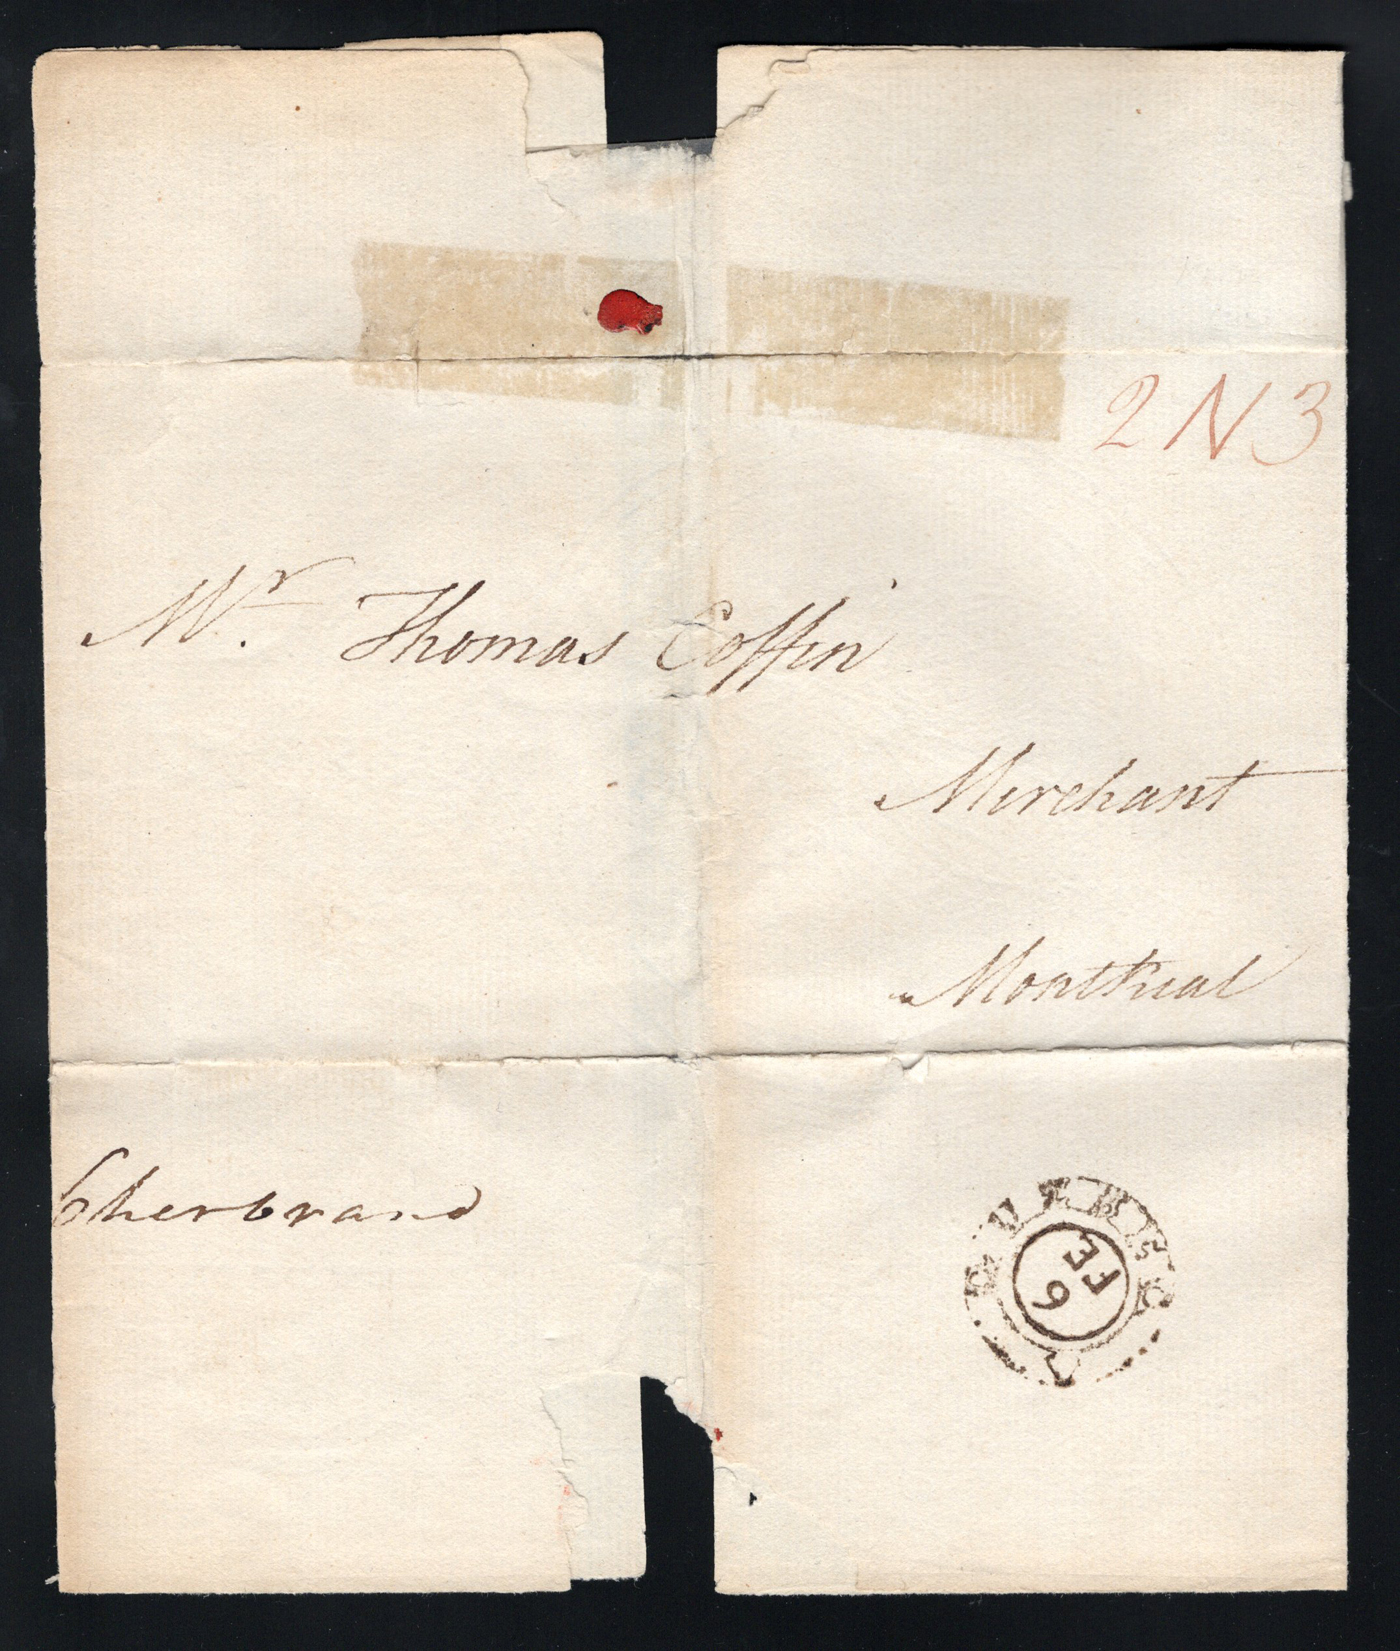 2 N 3
Mr. Thomas Coffin
Merchant
Montreal
Cherbrand
QUEBEC
FE
6